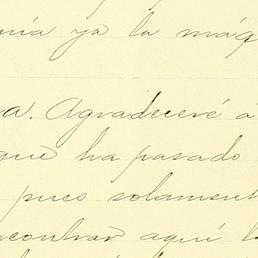 ya la máq
a. Agradeceré á
que ha pasado
pues solament
ncontrar aquí l